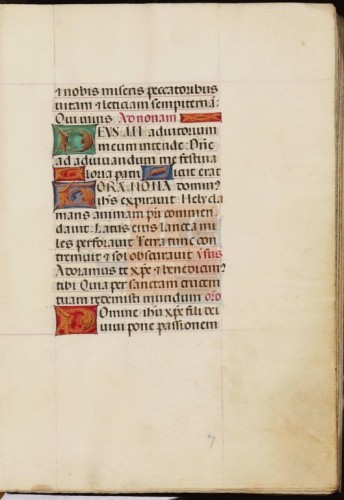 & nobis miseris peccatoribus
vitam & leticiam sempiternã.
Qui vivis Ad nonam
DEVS IN adiutorium
meum intende: Dñe
ad adiuvandum me festina
Gloria patri Sicut erat
HORA NONA domin9
ihs expiravit: Hely cla
mans animam pri commen
davit: Latus eius lancea mi
les perforavit Terra tunc con
tremuit & sol obscuravit ṽsus
Adoramus te xpe & benedicim9
tibi Quia per sanctam crucem
tuam redemisti mundum oro
Domine ihu xpe fili dei
vivi pone passionem